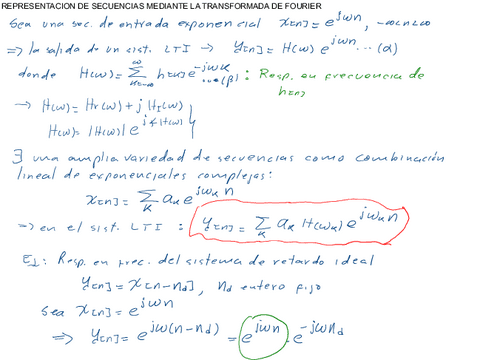 REPRESENTACION DE SECUENCIAS MEDIANTE LA TRANSFORMADA DE FOURIER
Sea una sec. de entrada exponencial x[n] = e^{jωn}, -∞<n<∞
⇒ la salida de un sist. LTI → y[n] = H(ω) e^{jωn} ... (α)
donde H(ω) = ∑_{k=-∞}^{∞} h[k] e^{-jωk} ...(β) : Resp. en frecuencia de h[n]
→ H(ω) = H_r(ω) + j H_I(ω)
H(ω) = |H(ω)| e^{j∡H(ω)}
∃ una amplia variedad de secuencias como combinación
lineal de exponenciales complejas:
x[n] = ∑_k a_k e^{jω_k n}
⇒ en el sist. LTI : y[n] = ∑_k a_k H(ω_k) e^{jω_k n}
Ej: Resp. en frec. del sistema de retardo ideal
y[n] = x[n-n_d], n_d entero fijo
Sea x[n] = e^{jωn}
⇒ y[n] = e^{jω(n-n_d)} = e^{jωn} · e^{-jωn_d}